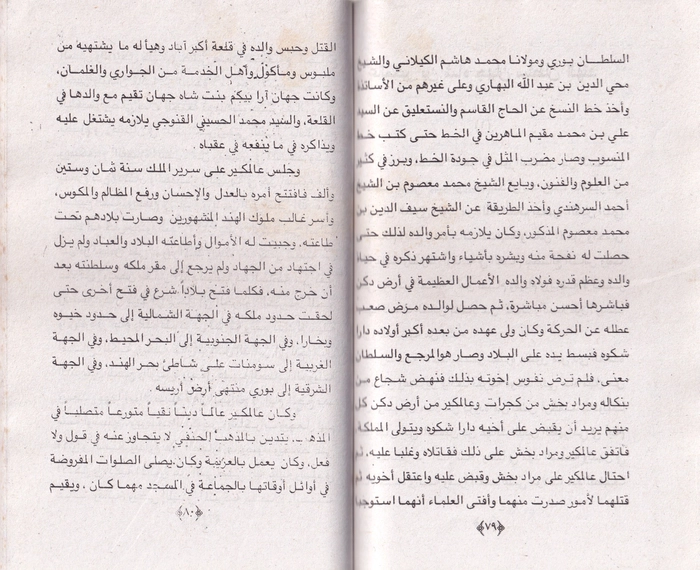 السلطان يوري ومولانا محمد هاشم الكيلاني والشيخ
محي الدين بن عبد الله البهاري وعلى غيرهم من الأساتذة
وأخذ خط النسخ عن الحاج القاسم والنستعليق عن السيد
علي بن محمد مقيم الماهرين في الخط حتى كتب خط
المنسوب وصار مضرب المثل في جودة الخط، وبرز في كثير
من العلوم والفنون، وبايع الشيخ محمد معصوم بن الشيخ
أحمد السرهندي وأخذ الطريقة عن الشيخ سيف الدين بن
محمد معصوم المذكور، وكان يلازمه بأمر والده لذلك حتى
حصلت له نفحة منه وبشره بأشياء واشتهر ذكره في حياة
والده وعظم قدره فولاه والده الأعمال العظيمة في أرض دكن
فباشرها أحسن مباشرة، ثم حصل لوالده مرض صعب
عطله عن الحركة وكان ولى عهده من بعده أكبر أولاده دارا
شكوه فبسط يده على البلاد وصار هو المرجع والسلطان
معنى، فلم ترض نفوس إخوته بذلك فنهض شجاع من
بنكاله ومراد بخش من كجرات وعالمكير من أرض دكن كل
منهم يريد أن يقبض على أخيه دارا شكوه ويتولى المملكة
فاتفق عالمكير ومراد بخش على ذلك فقاتلاه وغلبا عليه، ثم
احتال عالمكير على مراد بخش وقبض عليه واعتقل أخويه ثم
قتلهما لأمور صدرت منهما وأفتى العلماء أنهما استوجبا
﴿٧٩﴾
القتل وحبس والده في قلعة أكبر آباد وهيأ له ما يشتهيه من
ملبوس ومأكول وأهل الخدمة من الجواري والغلمان،
وكانت جهان آرا بيكم بنت شاه جهان تقيم مع والدها في
القلعة، والسيد محمد الحسيني القنوجي يلازمه يشتغل عليه
ويذاكره في ما ينفعه في عقباه .
وجلس عالمكير على سرير الملك سنة ثمان وستين
وألف فافتتح أمره بالعدل والإحسان ورفع المظالم والمكوس،
وأسر غالب ملوك الهند المشهورين وصارت بلادهم تحت
طاعته، وجبيت له الأموال وأطاعته البلاد والعباد ولم يزل
في اجتهاد من الجهاد ولم يرجع إلى مقر ملكه وسلطنته بعد
أن خرج منه، فكلما فتح بلاداً شرع في فتح أخرى حتى
لحقت حدود ملكه في الجهة الشمالية إلى حدود خيوه
وبخارا، وفي الجهة الجنوبية إلى البحر المحيط، وفي الجهة
الغربية إلى سومنات على شاطئ بحر الهند، وفي الجهة
الشرقية إلى بوري منتهى أرض أريسه .
وكان عالمكير عالماً ديناً تقياً متورعاً متصلباً في
يتدين بالمذهب الحنفي لا يتجاوز عنه في قول ولا
فعل، وكان يعمل بالعزيمة وكان يصلى الصلوات المفروضة
في أوائل أوقاتها بالجماعة في المسجد مهما كان ، ويقيم
﴿٨٠﴾